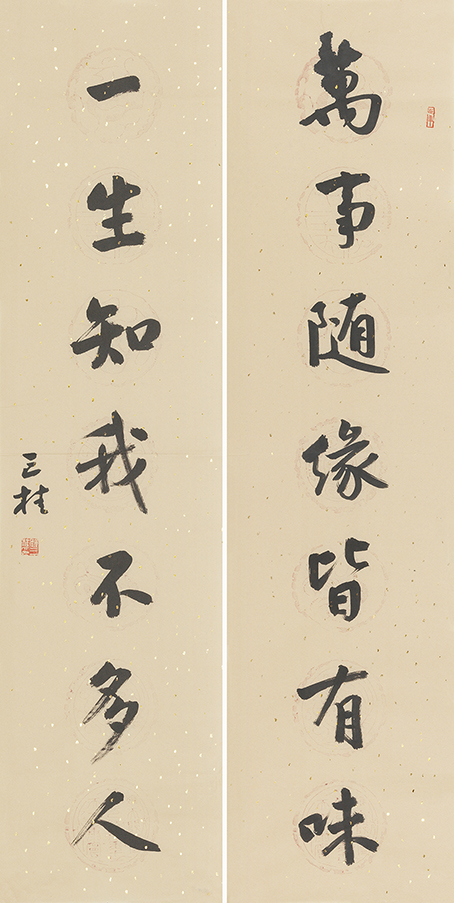 萬事随緣皆有味
一生知我不多人
三桂